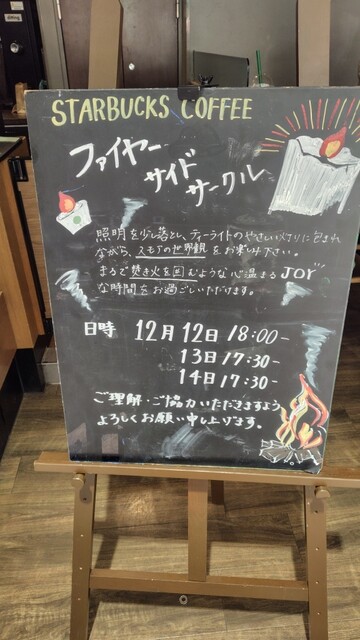 STARBUCKS COFFEE
ファイヤー
サイド
サークル
照明を少し落とし、ティーライトのやさしい灯りに包まれ
ながら、スモアの世界観をお楽しみ下さい。
まるで焚き火を囲むような心温まるJOY
な時間をお過ごしいただけます。
日時 12月12日 18:00-
13日 17:30-
14日 17:30-
ご理解・ご協力いただきますよう
よろしくお願い申し上げます。